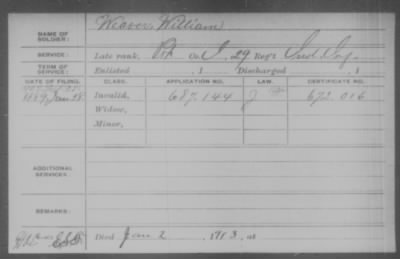 NAME OF SOLDIER: Weaver, William
SERVICE: Late rank, Pvt Co. I, 29 Reg't Ind. Inf.
TERM OF SERVICE: Enlisted , 1 Discharged , 1
DATE OF FILING. CLASS. APPLICATION NO. LAW. CERTIFICATE NO.
1889, Jan 18 Invalid, 687.144 J 672.016
Widow,
Minor,
ADDITIONAL SERVICES:
REMARKS:
Died Jan 2 1913, at